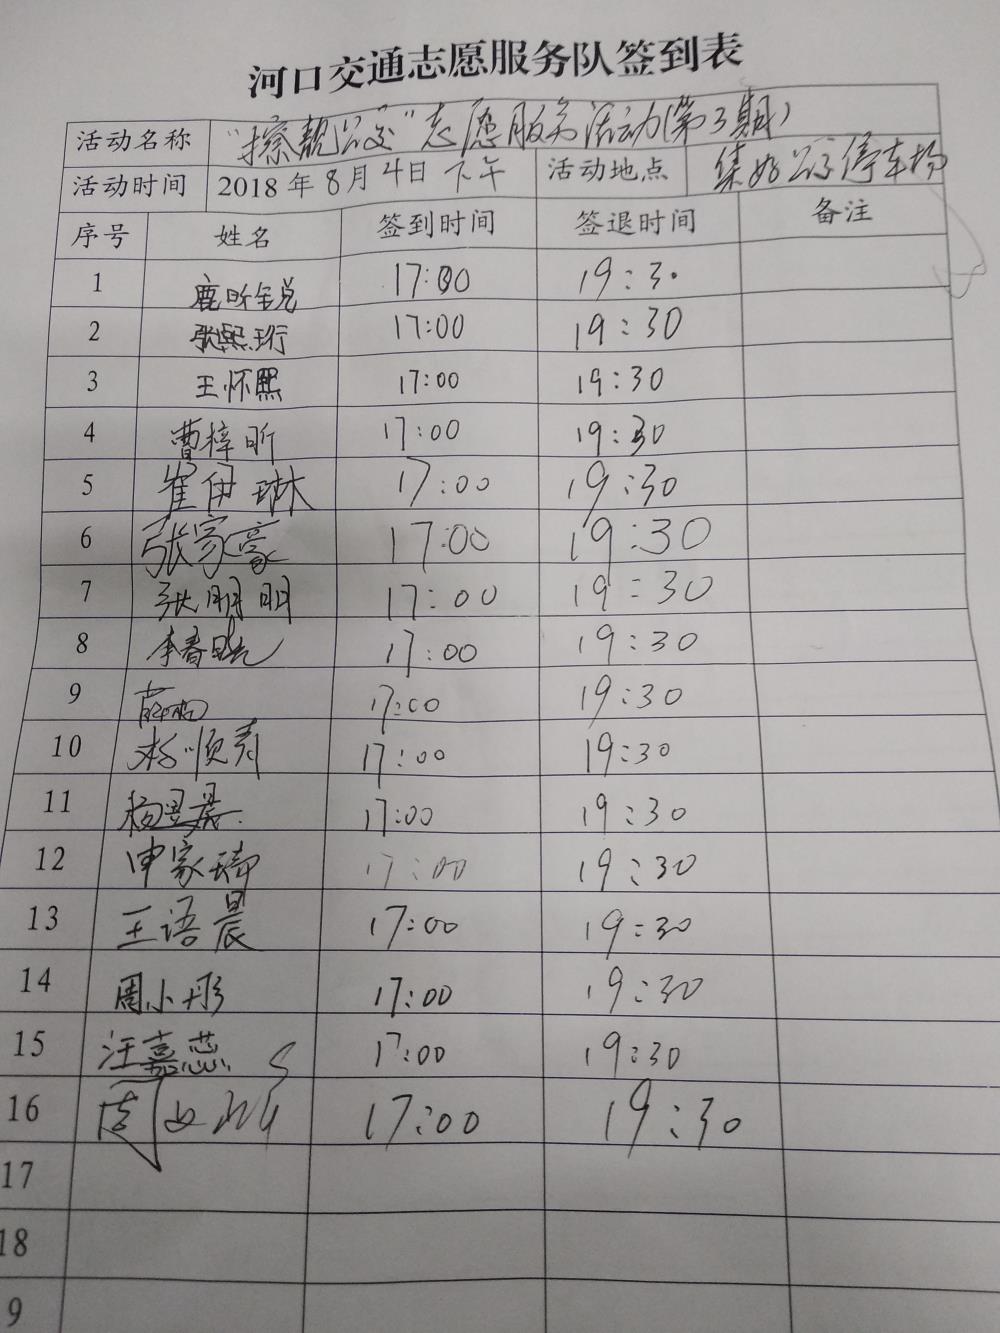 河口交通志愿服务队签到表
活动名称 “擦靓公交”志愿服务活动(第3期)
活动时间 2018年8月4日下午 活动地点 公交停车场
序号 姓名 签到时间 签退时间 备注
1 鹿昕锐 17:00 19:30
2 张熙珩 17:00 19:30
3 王怀熙 17:00 19:30
4 曹梓昕 17:00 19:30
5 崔伊琳 17:00 19:30
6 张家豪 17:00 19:30
7 张明明 17:00 19:30
8 李春 17:00 19:30
9 17:00 19:30
10 顺 17:00 19:30
11 杨昱晨 17:00 19:30
12 申家琦 17:00 19:30
13 王语晨 17:00 19:30
14 周小彤 17:00 19:30
15 汪嘉蕊 17:00 19:30
16 周 17:00 19:30
17
18
9